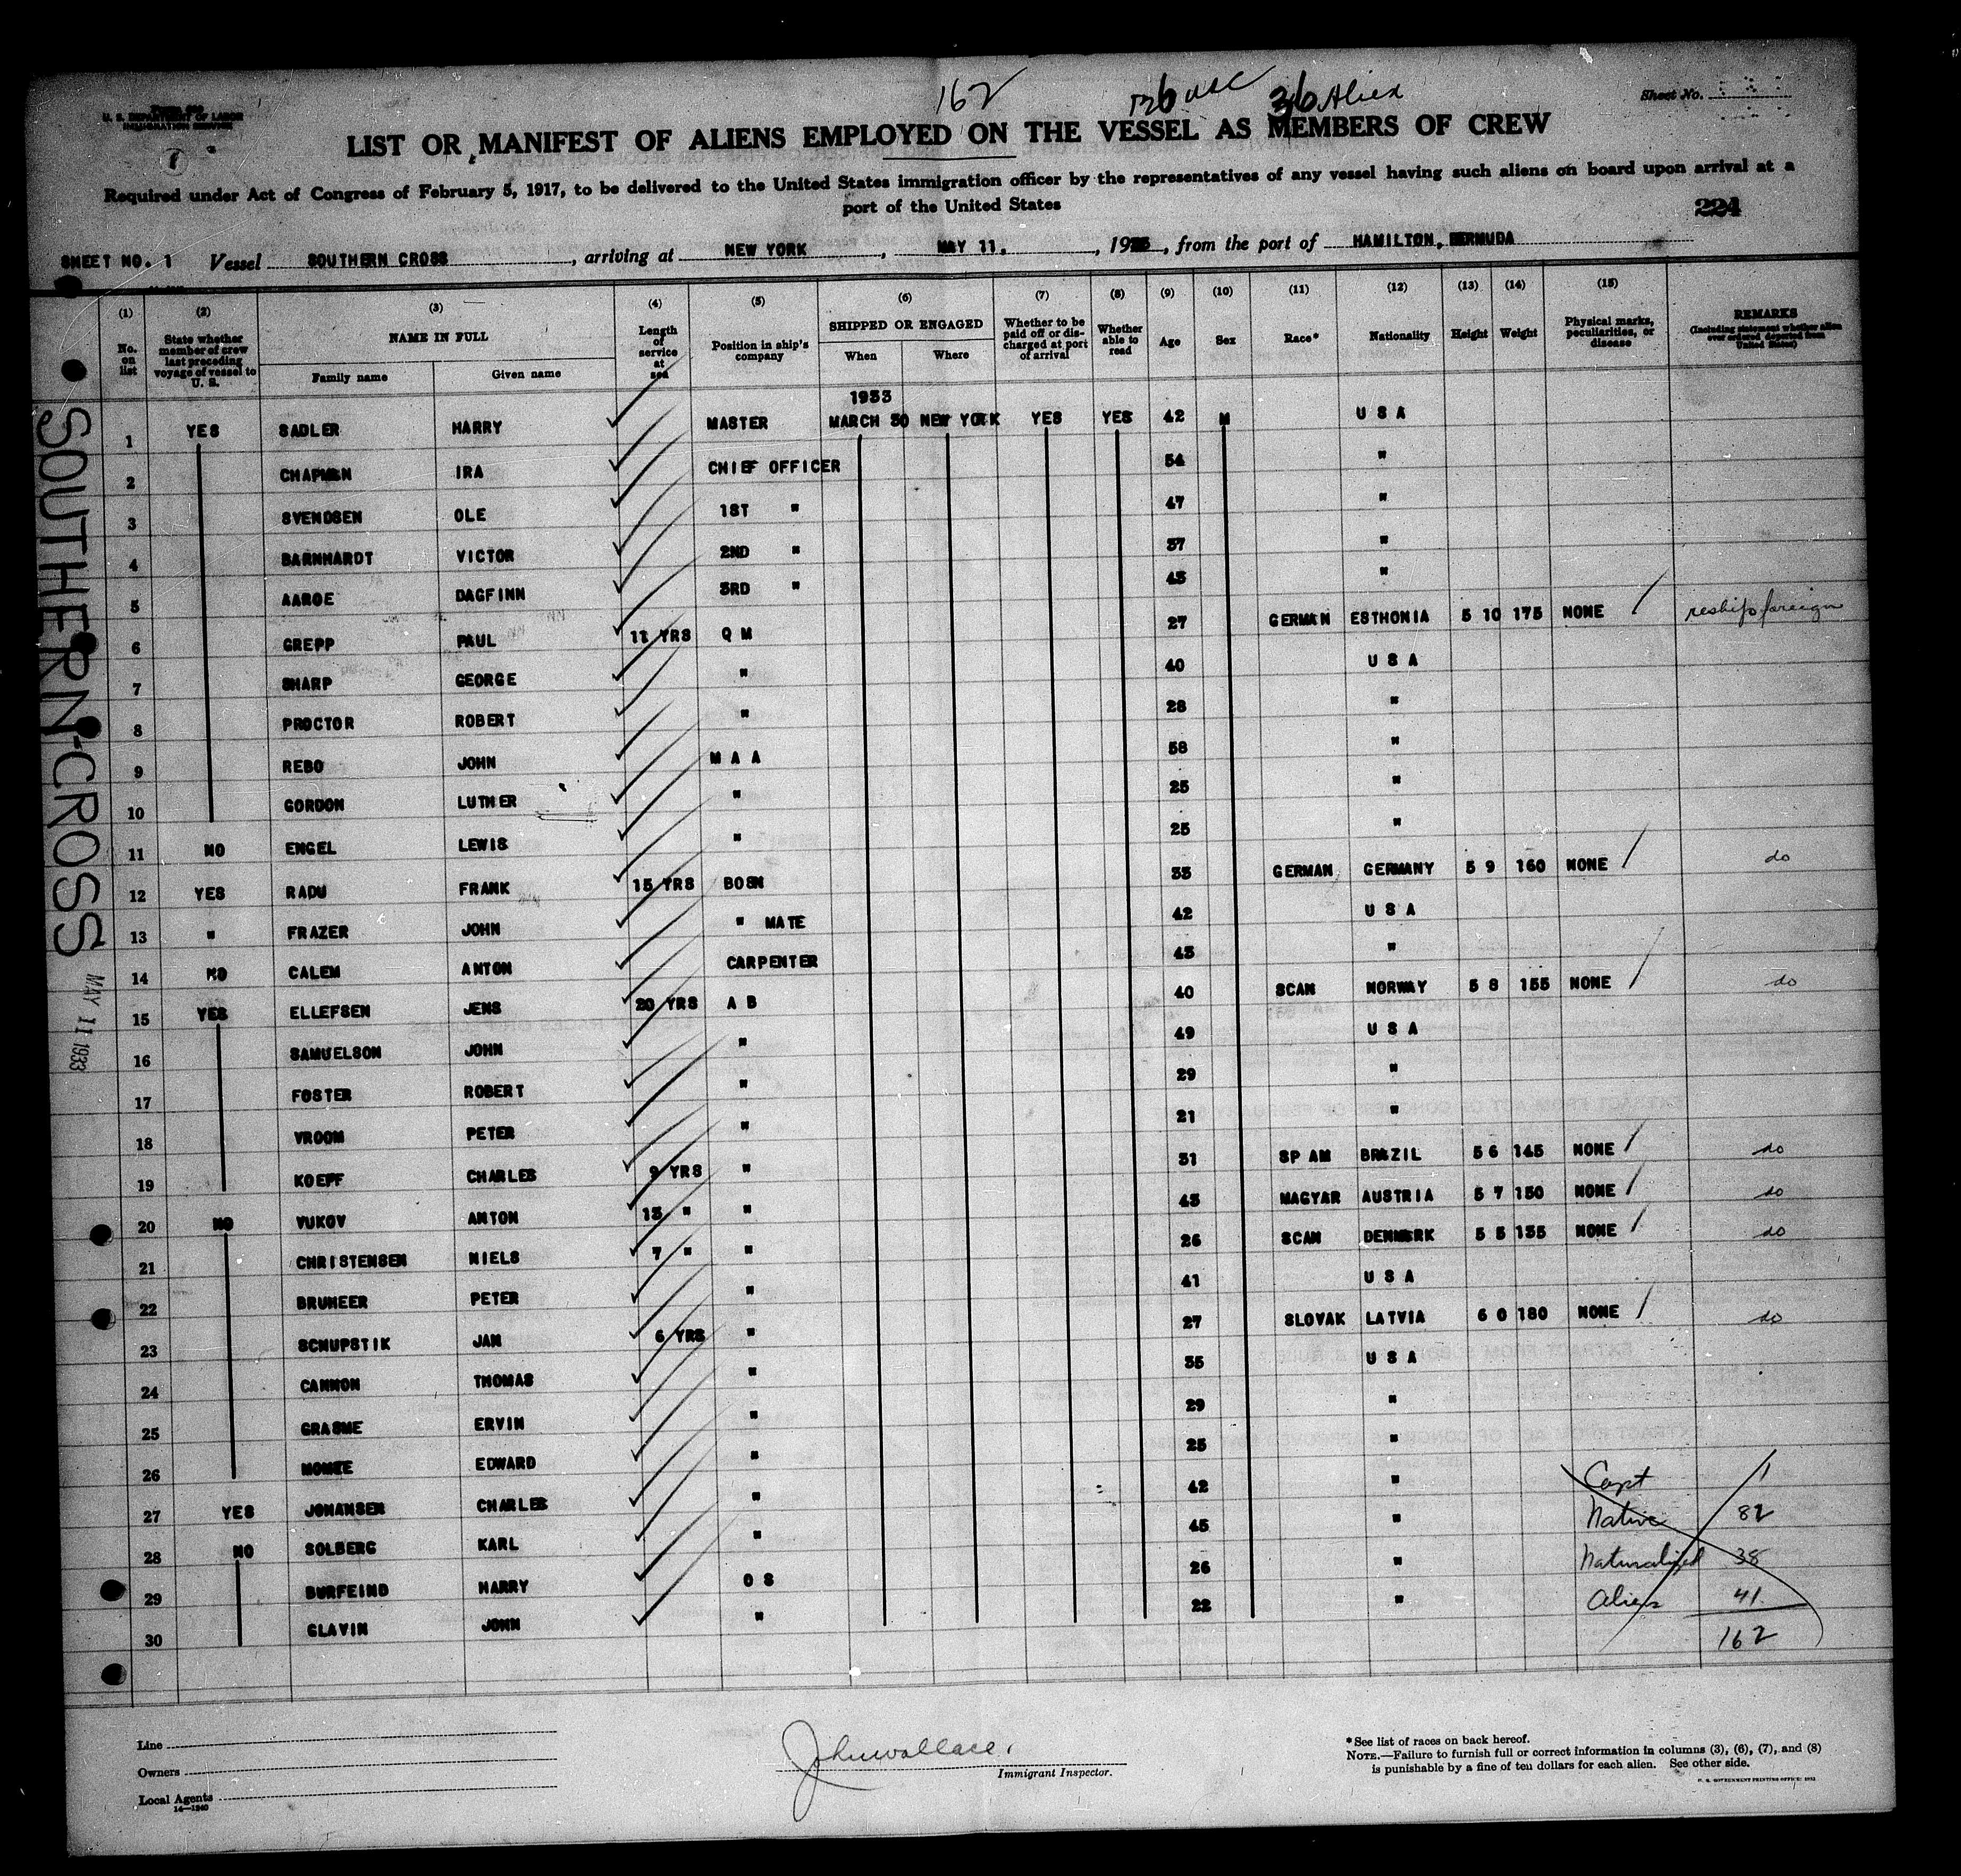 162 126 USC 36 Alien
Sheet No.
U. S. DEPARTMENT OF LABOR
IMMIGRATION SERVICE
1
LIST OR MANIFEST OF ALIENS EMPLOYED ON THE VESSEL AS MEMBERS OF CREW
Required under Act of Congress of February 5, 1917, to be delivered to the United States immigration officer by the representatives of any vessel having such aliens on board upon arrival at a
port of the United States
224
SHEET NO. 1 Vessel SOUTHERN CROSS, arriving at NEW YORK, MAY 11, , 19, from the port of HAMILTON, BERMUDA
(1) (2) (3) (4) (5) (6) (7) (8) (9) (10) (11) (12) (13) (14) (15) REMARKS
No. on list State whether member of crew last preceding voyage of vessel to U. S. NAME IN FULL Length of service at sea Position in ship's company SHIPPED OR ENGAGED Whether to be paid off or discharged at port of arrival Whether able to read Age Sex Race* Nationality Height Weight Physical marks, peculiarities, or disease (Including statement whether alien ever ordered deported from United States)
Family name Given name When Where
1933
1 YES SADLER HARRY MASTER MARCH 30 NEW YORK YES YES 42 M U S A
2 CHAPMAN IRA CHIEF OFFICER 54 "
3 SVENDSEN OLE 1ST " 47 "
4 BARNHARDT VICTOR 2ND " 37 "
5 AAROE DAGFINN 3RD " 43 "
6 GREPP PAUL 11 YRS Q M 27 GERMAN ESTHONIA 5 10 175 NONE reship foreign
7 SHARP GEORGE " 40 U S A
8 PROCTOR ROBERT " 28 "
9 REBO JOHN M A A 58 "
10 GORDON LUTHER " 25 "
11 NO ENGEL LEWIS " 25 "
12 YES RADU FRANK 15 YRS BOSN 33 GERMAN GERMANY 5 9 160 NONE do
13 " FRAZER JOHN " MATE 42 U S A
14 NO CALEM ANTON CARPENTER 43 "
15 YES ELLEFSEN JENS 20 YRS A B 40 SCAN NORWAY 5 8 155 NONE do
16 SAMUELSON JOHN " 49 U S A
17 FOSTER ROBERT " 29 "
18 VROOM PETER " 21 "
19 KOEFF CHARLES 9 YRS " 31 SP AM BRAZIL 5 6 145 NONE do
20 NO VUKOV ANTON 15 " " 43 MAGYAR AUSTRIA 5 7 150 NONE do
21 CHRISTENSEN NIELS 7 " " 26 SCAN DENMARK 5 5 135 NONE do
22 BRUNEER PETER " 41 U S A
23 SCHUPSTIK JAN 6 YRS " 27 SLOVAK LATVIA 6 0 180 NONE do
24 CANNON THOMAS " 35 U S A
25 GRASME ERVIN " 29 "
26 EDWARD " 25 "
27 YES JOHANSEN CHARLES " 42 "
28 NO SOLBERG KARL " 45 "
29 BURFEIND HARRY O S 26 "
30 GLAVIN JOHN " 22 "
Capt 1
Native 82
Naturalized 38
Aliens 41
162
SOUTHERN-CROSS
MAY 11 1933
Line
Owners
Local Agents
14—1240
John Wallace.
Immigrant Inspector.
* See list of races on back hereof.
NOTE.—Failure to furnish full or correct information in columns (3), (6), (7), and (8)
is punishable by a fine of ten dollars for each alien. See other side.
U. S. GOVERNMENT PRINTING OFFICE: 1932